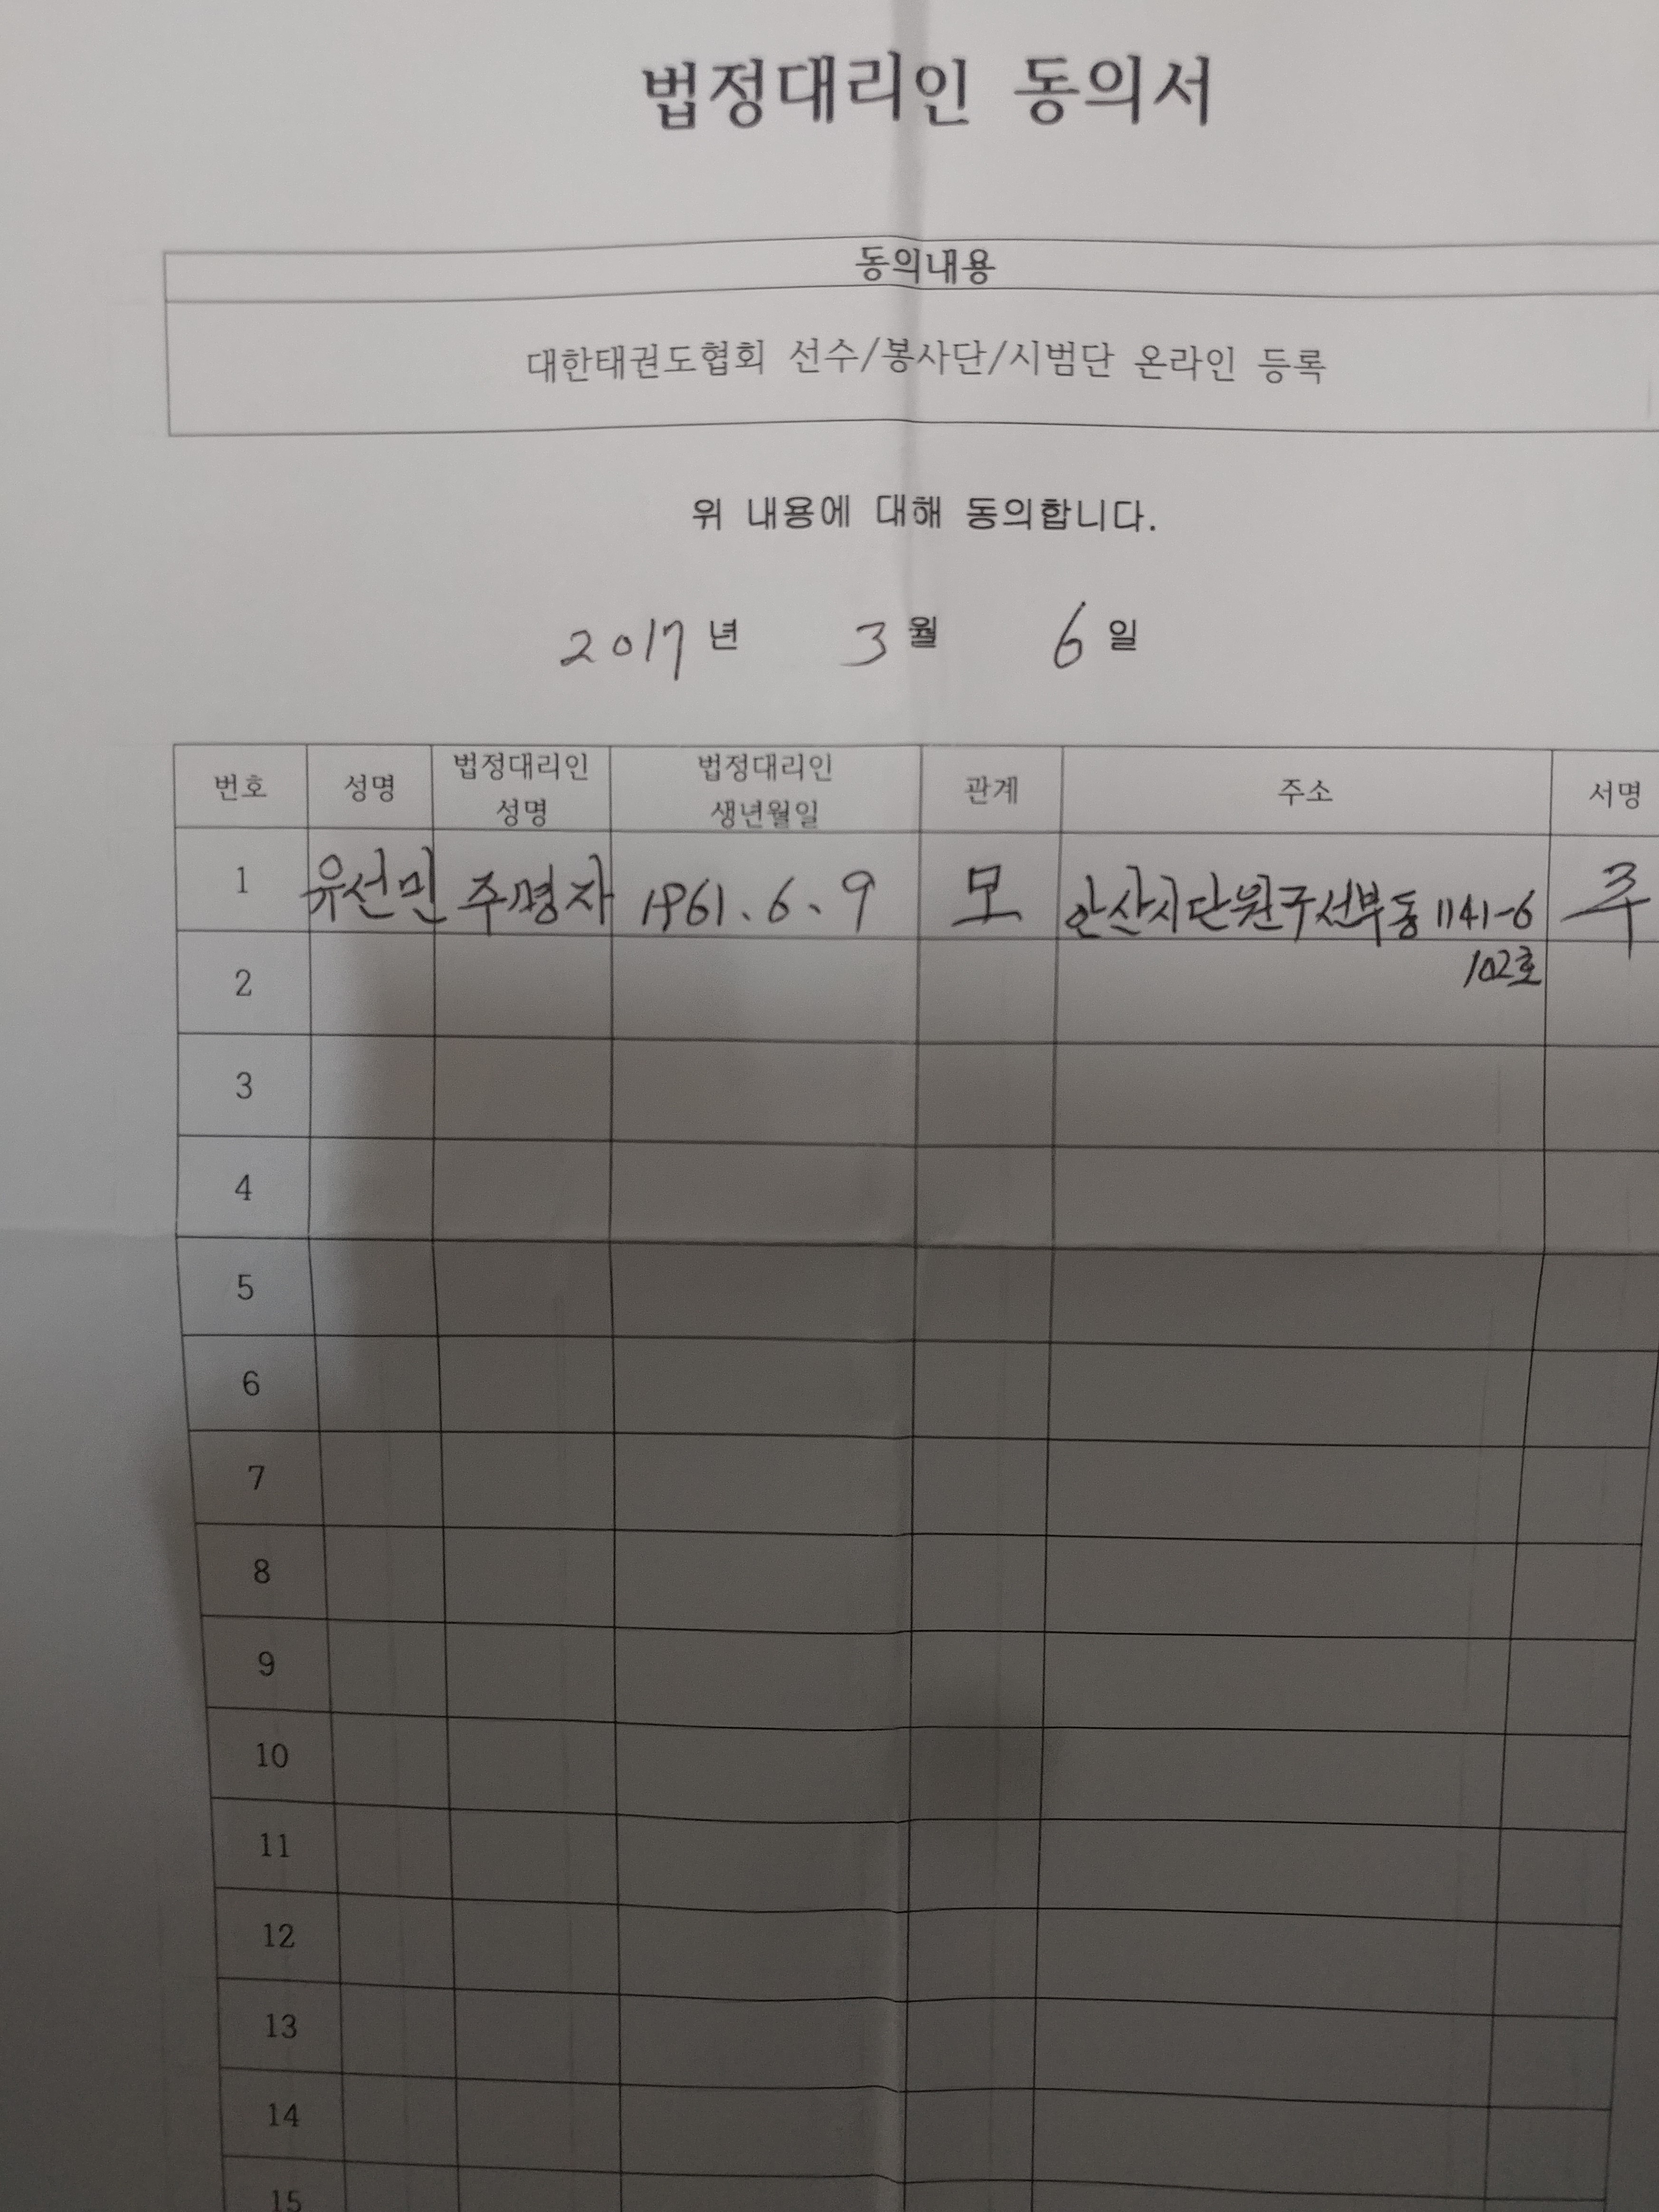 법정대리인 동의서
동의내용
대한태권도협회 선수/봉사단/시범단 온라인 등록
위 내용에 대해 동의합니다.
2017년 3월 6일
번호 성명 법정대리인 성명 법정대리인 생년월일 관계 주소 서명
1 유선민 주명자 1961. 6. 9 모 안산시단원구선부동 1141-6 주
102호
2
3
4
5
6
7
8
9
10
11
12
13
14
15